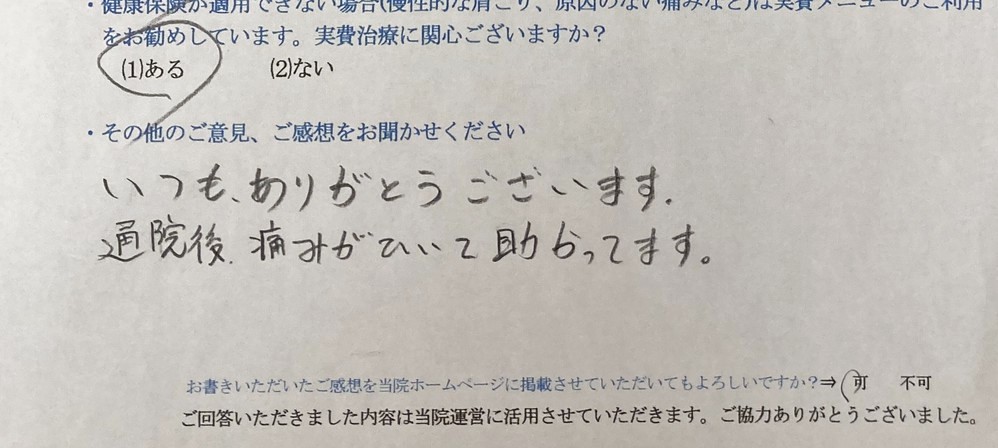 ・健康保険が適用できない場合(慢性的な肩こり、原因のない痛みなど)は実費メニューのご利用
をお勧めしています。実費治療に関心ございますか？
(1)ある (2)ない
・その他のご意見、ご感想をお聞かせください
いつも、ありがとうございます.
通院後、痛みがひいて助かってます。
お書きいただいたご感想を当院ホームページに掲載させていただいてもよろしいですか？⇒ 可 不可
ご回答いただきました内容は当院運営に活用させていただきます。ご協力ありがとうございました。